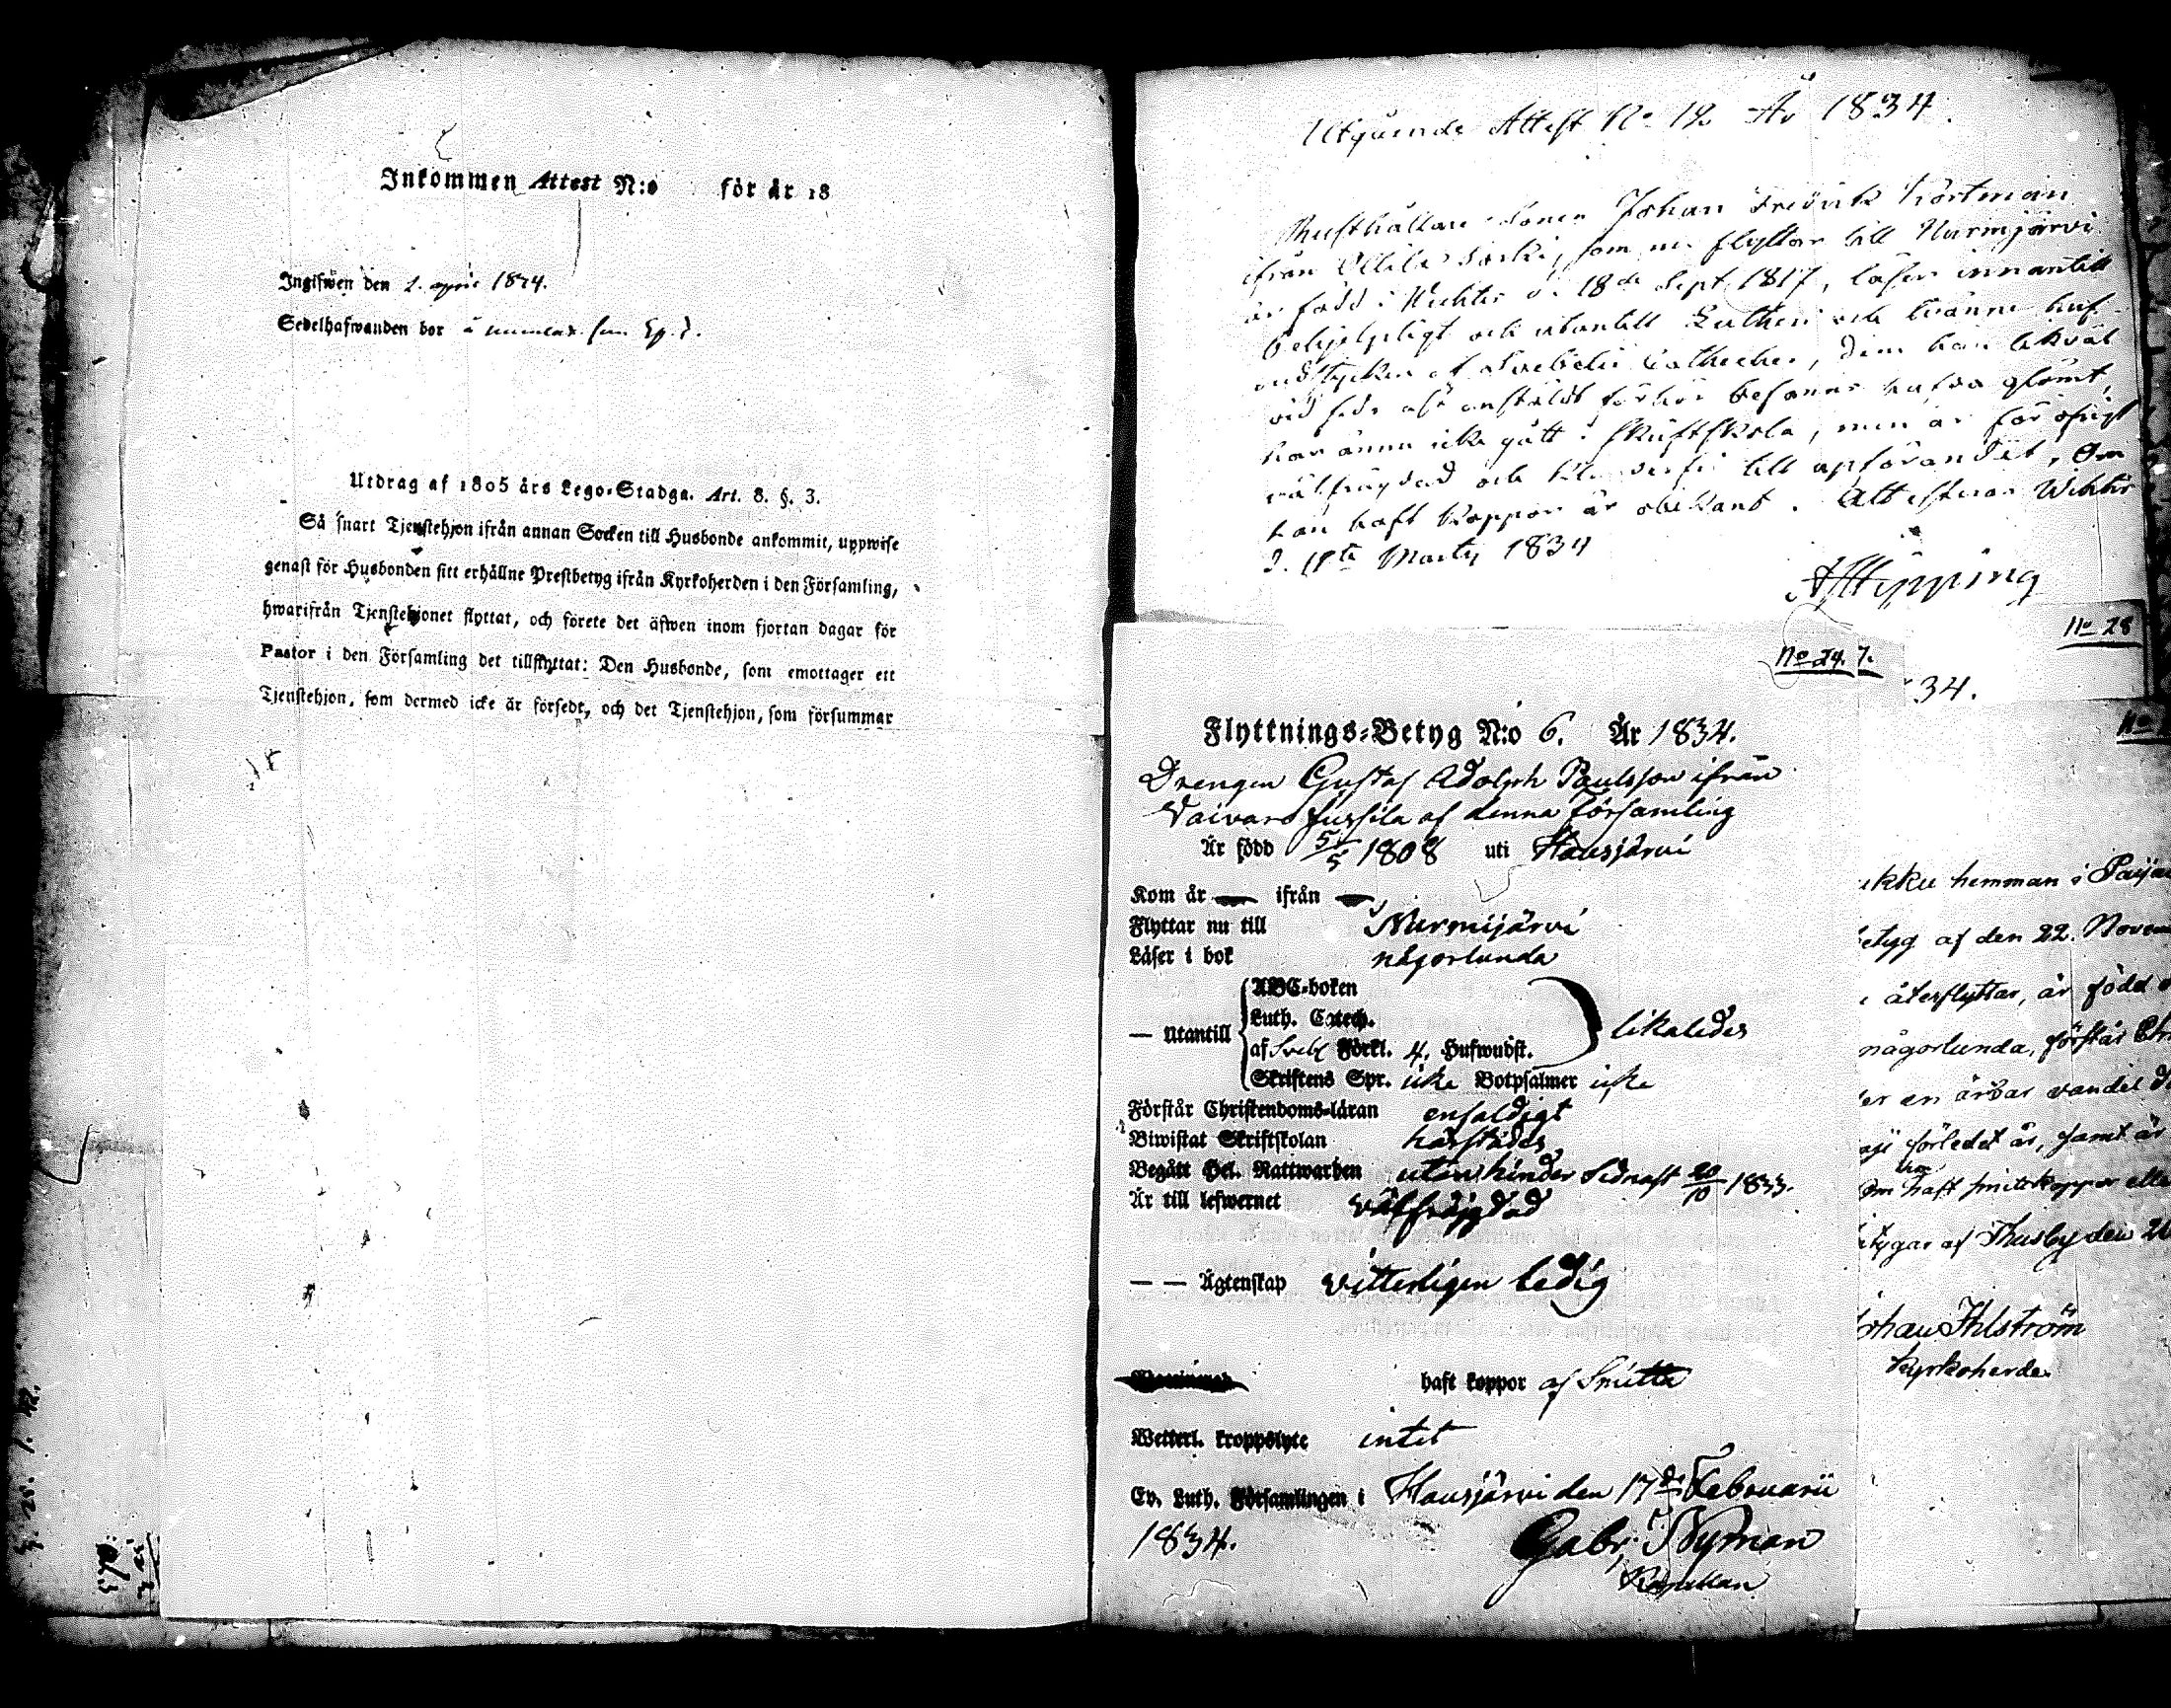 Inkommen Attest N:o för år 18
Ingifwen den 2. april 1834.
Sedelhafwanden bor å
Utdrag af 1805 års Lego-Stadga. Art. 8. §. 3.
Så snart Tjenstehjon ifrån annan Socken till Husbonde ankommit, uppwise
genast för Husbonden sitt erhållne Prestbetyg ifrån Kyrkoherden i den Församling,
hwarifrån Tjenstehjonet flyttat, och förete det äfwen inom fjortan dagar för
Pastor i den Församling det tillflyttat: Den Husbonde, som emottager ett
Tjenstehjon, som dermed icke är försedt, och det Tjenstehjon, som försummar
Utgående Attest No 12 År 1834.
Rusthållare Sonen Johan Fredrik Hörtman
ifrån Ollila som nu flyttar till Nurmijärvi
är född i Wichtis d. 18de Sept. 1817, läser innantill
behjelpligt och utantill Lutheri och tvänne huf-
vudstycken af Svebelii Catheches, dem han likväl
vid sednast anstäldt förhör befanns hafva glömt,
har ännu icke gått i skriftskola, men är för öfrigt
välfrägdad och till uppförandet, Om
han haft koppor är obekant. Attesteras Wichtis
d. 18de Martij 1834
No 28
No 24. 7.
34.
Flyttnings-Betyg N:o 6. År 1834.
Drengen Gustaf Adolph Paulsson ifrån
Vaivars Jussila af denna Församling
Är född 5/5 1808 uti Hausjärvi
Kom år — ifrån —
Flyttar nu till Nurmijärvi
Läser i bok någorlunda
— Utantill
ABC-boken
Luth. Catech.
af Sveb. Förkl. 4. Hufwudst.
likaledes
Skriftens Spr. icke Botpsalmer icke
Förstår Christendoms-läran enfaldigt
Biwistat Skriftskolan härstädes
Begått Hel. Nattwarden utan hinder sednast 20/10 1833.
Är till lefwernet välfräjgdad
— — Ägtenskap vitterligen ledig
haft koppor af Smitta
Wetterl. kroppslyte intet
Ev. Luth. Församlingen i Hausjärvi den 17de Februarii
1834.
Gabr. Nyman
Kapellan
No
ukku hemman i Paija
betyg af den 22. Novem
återflyttar, är född
någorlunda, förstår Chr
en ärbar vandel
förledet år, samt är
Om han haft smittkoppor elle
betygar af Thusby den 26
Johan Ihlström
Kyrkoherde